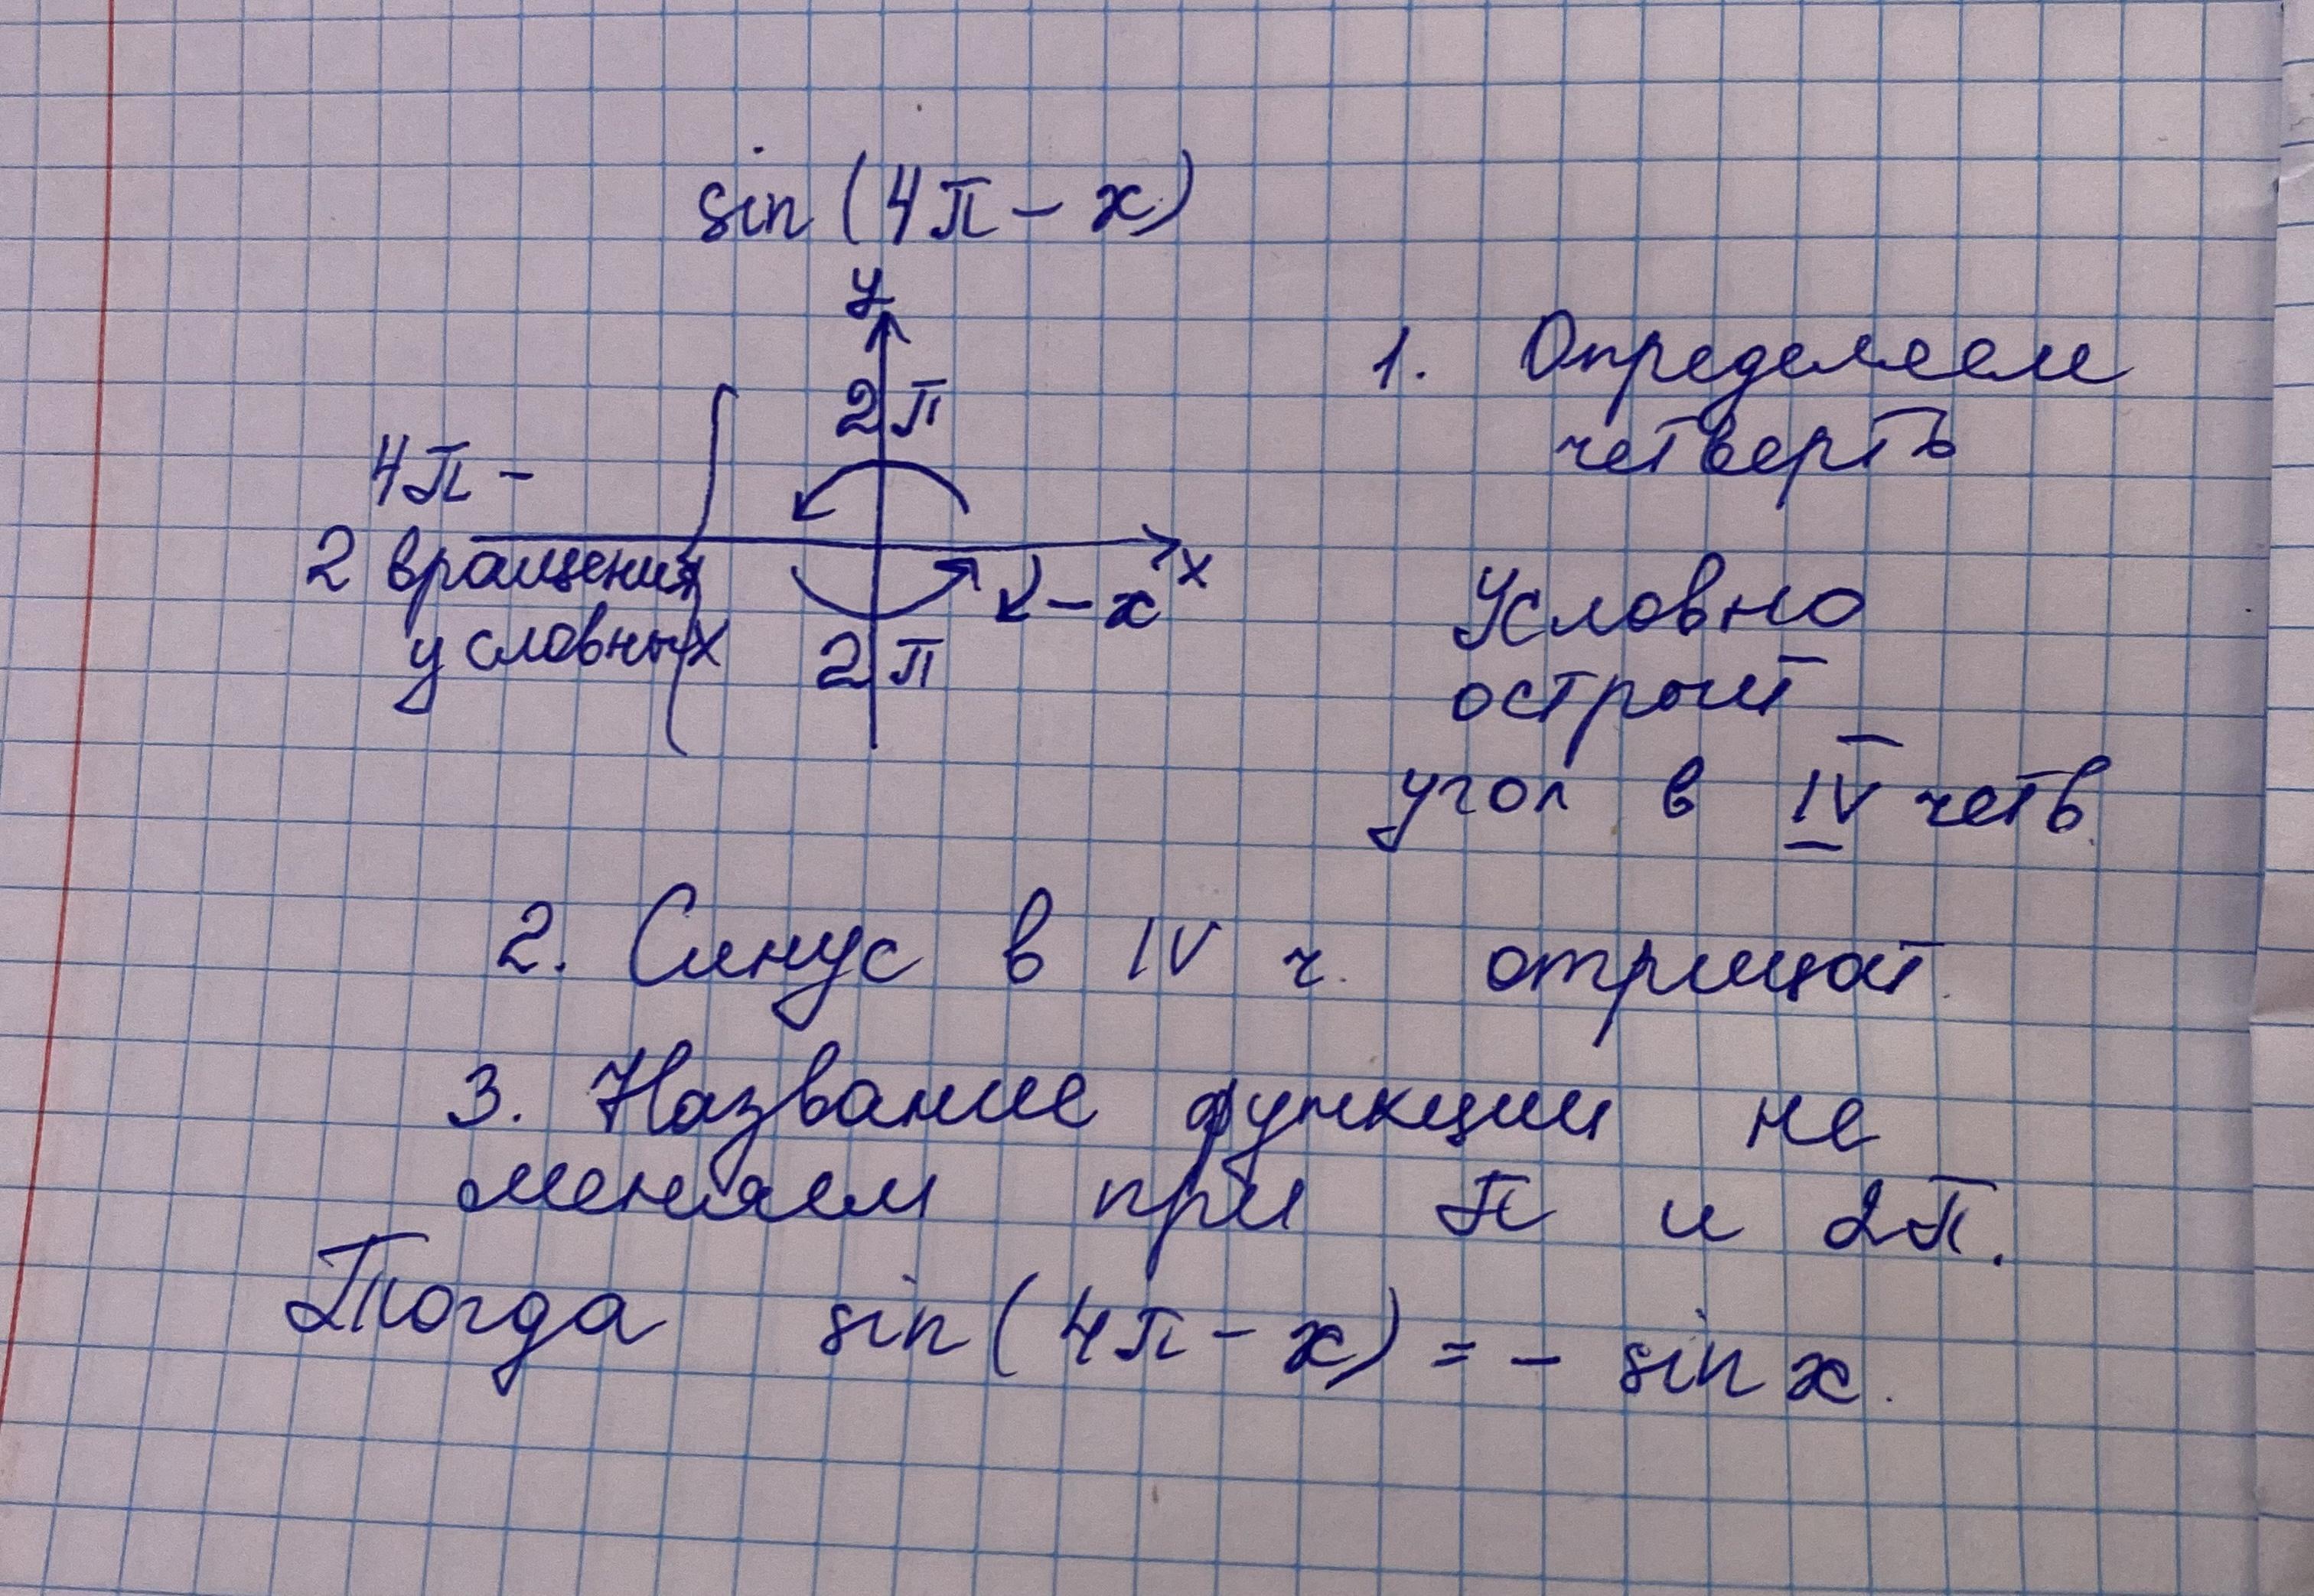 sin (4π - x)
y
2π
4π -
2 вращения
условных
x
- x
2π
1. Определяем
четверть
Условно
острый
угол в IV четв.
2. Синус в IV ч. отрицат.
3. Название функции не
меняем при π и 2π.
Тогда sin (4π - x) = - sin x.